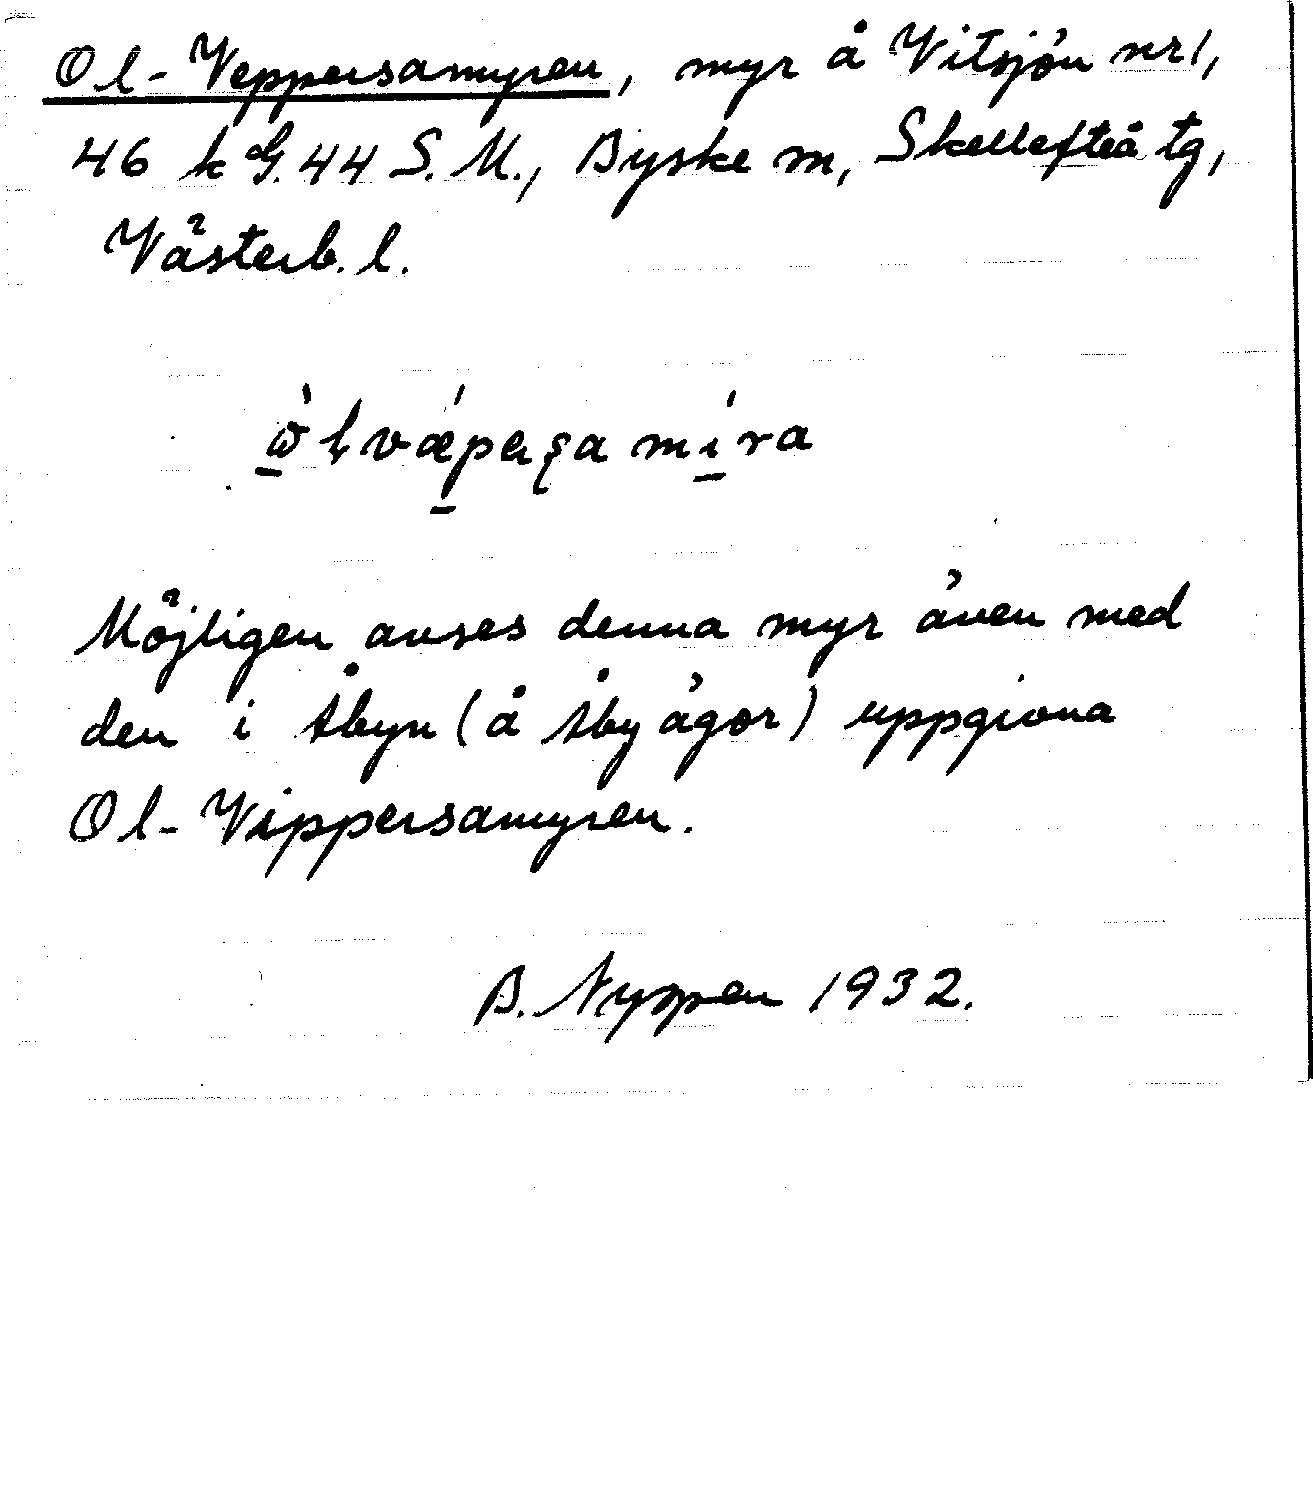 Ol-Veppersamyren, myr å Vitsjön nr 1,
46 k G. 44 S. M., Byske m, Skellefteå tg,
Västerb. l.
Möjligen avses denna myr även med
den i Åbyn (å Åby ägor) uppgivna
Ol-Vippersamyren.
B. Nyppen 1932.